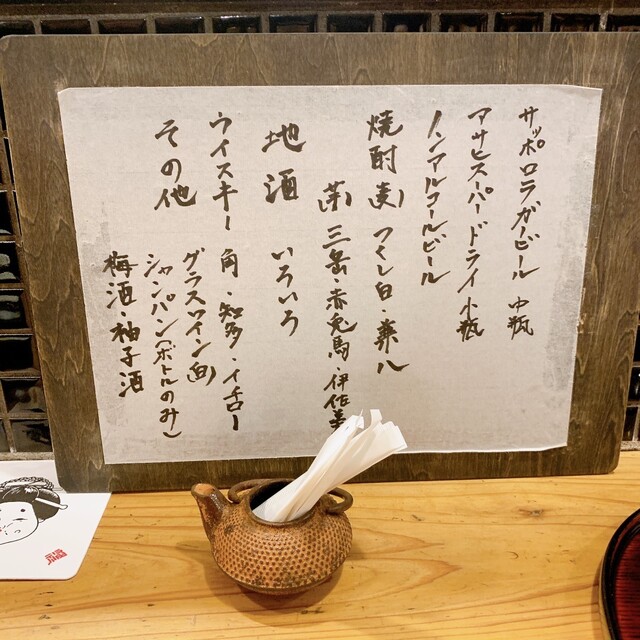 サッポロラガービール 中瓶
アサヒスーパードライ 小瓶
ノンアルコールビール
焼酎(麦) つくし白・兼八
(芋) 三岳・赤兎馬・伊佐美
地酒 いろいろ
ウイスキー 角・知多・イチロー
その他 グラスワイン(白)
シャンパン(ボトルのみ)
梅酒・柚子酒